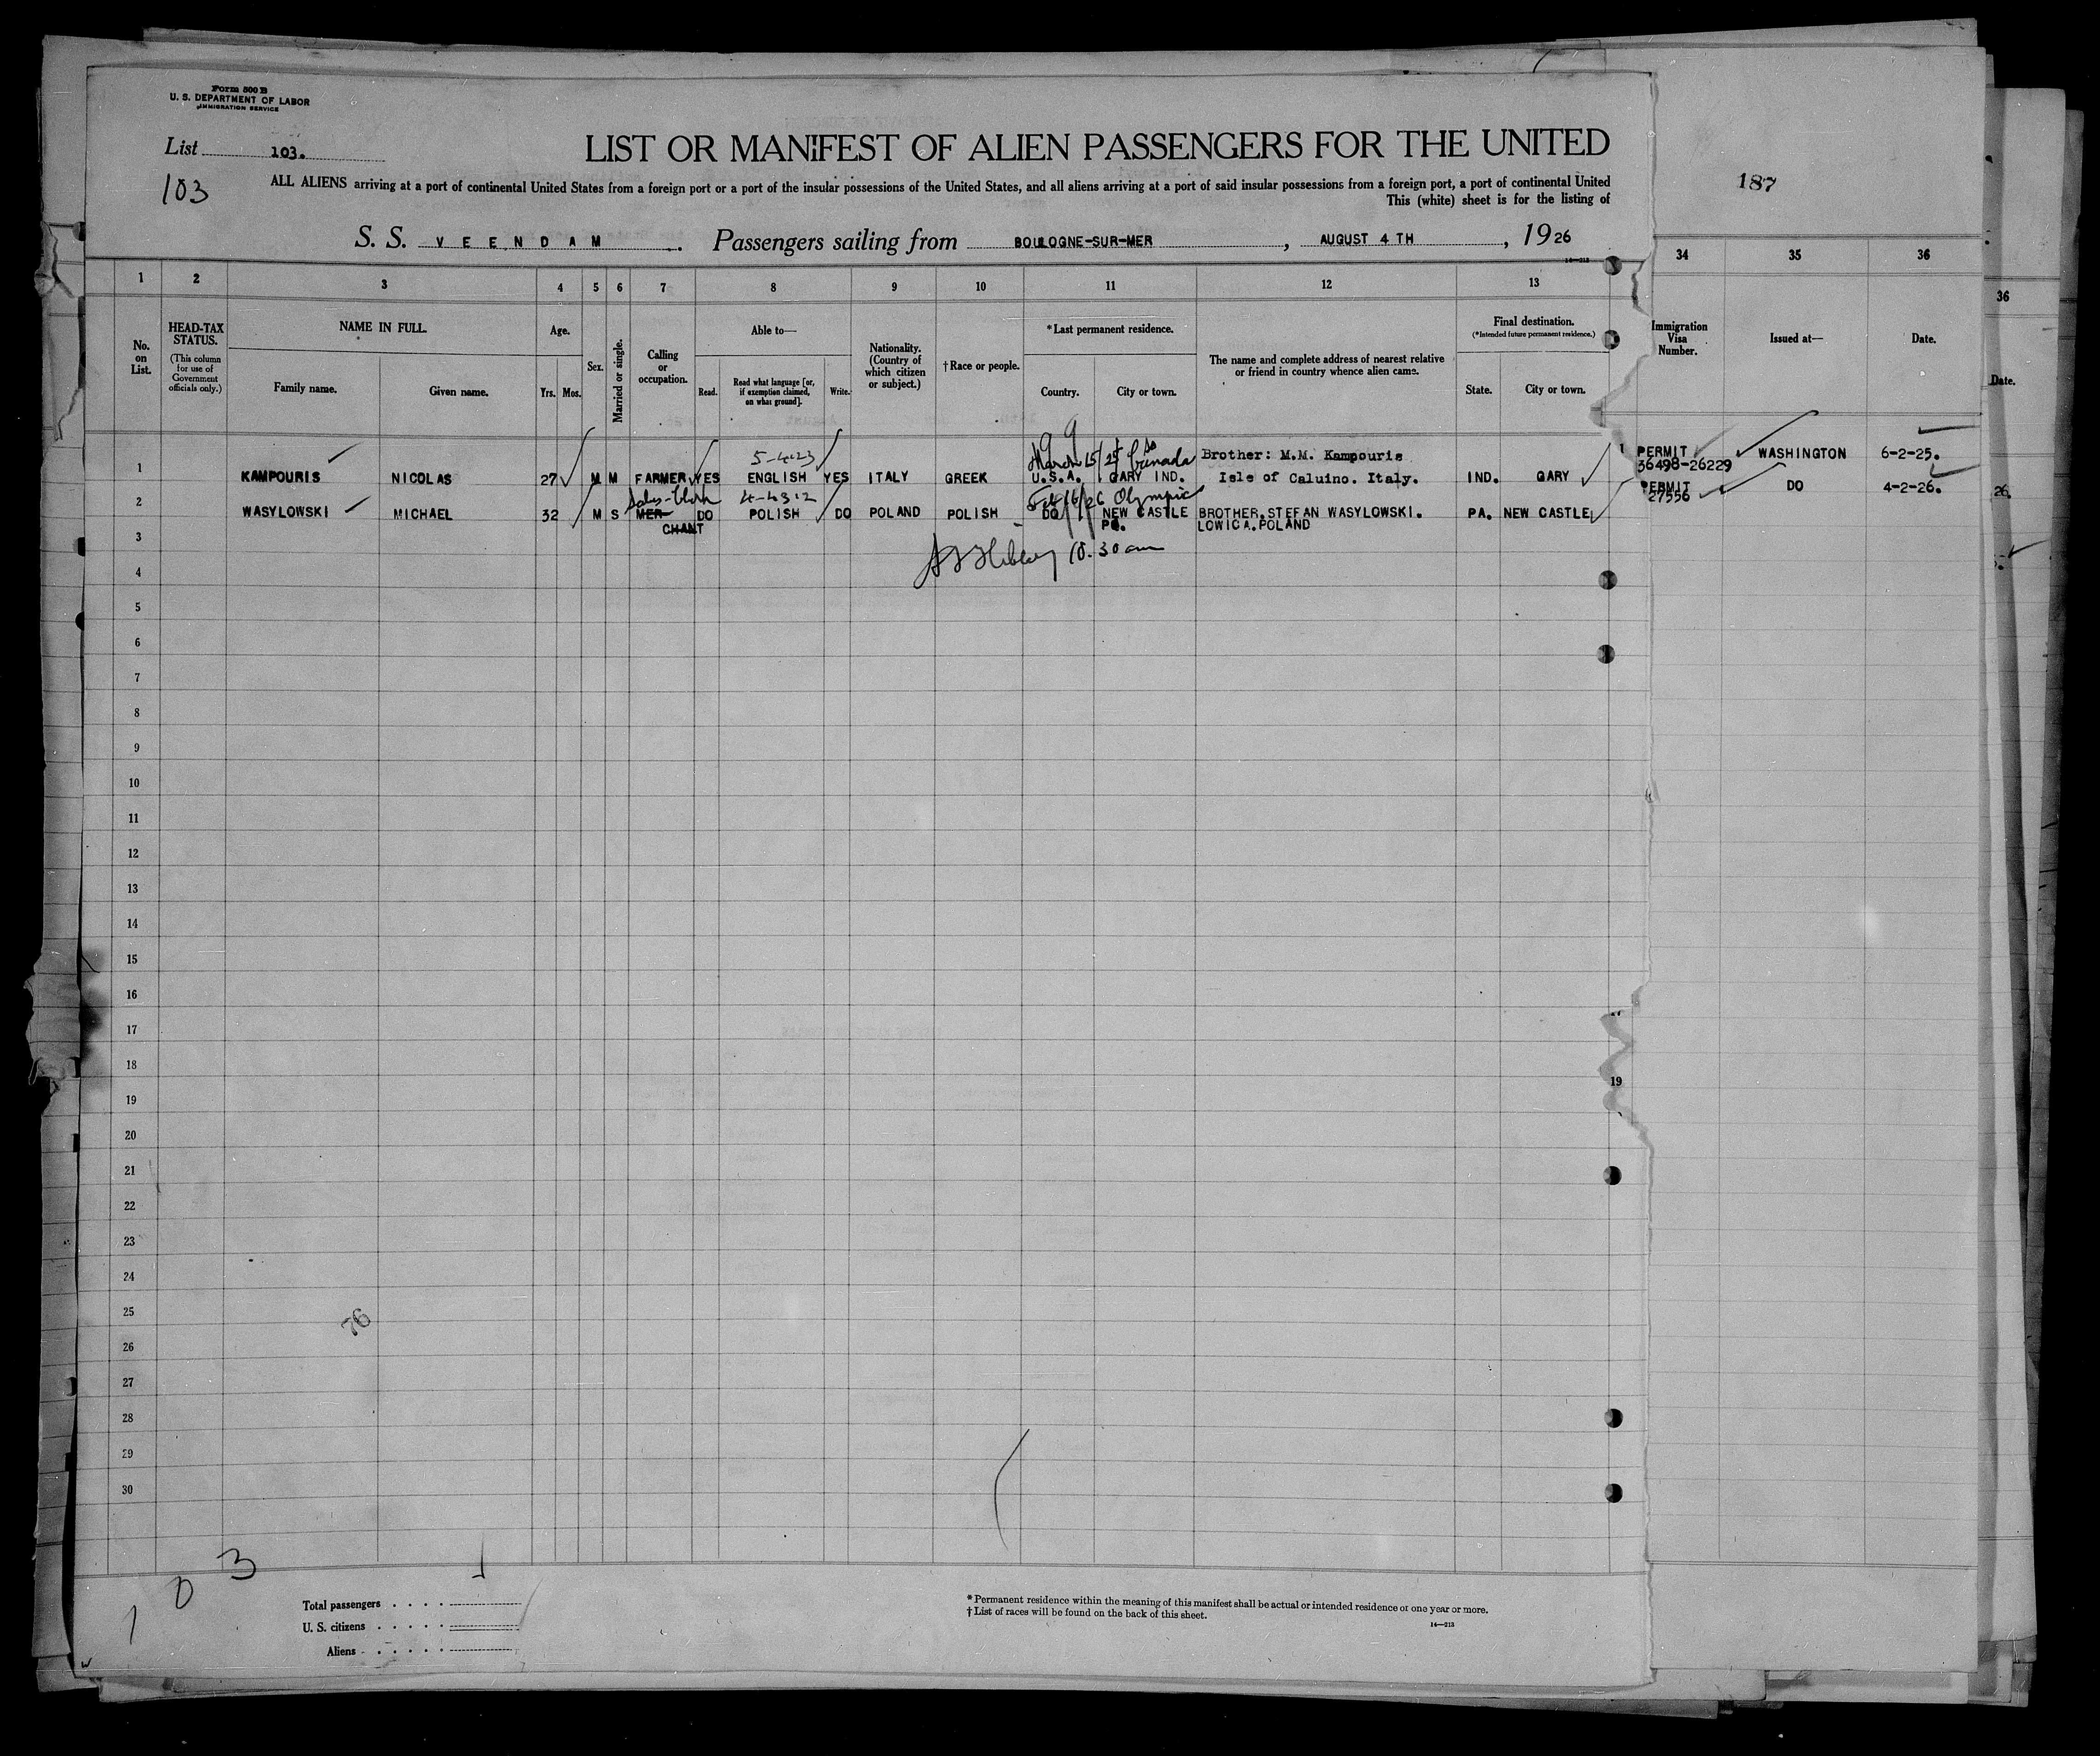 Form 500 B
U. S. DEPARTMENT OF LABOR
IMMIGRATION SERVICE
List 103.
103
LIST OR MANIFEST OF ALIEN PASSENGERS FOR THE UNITED
ALL ALIENS arriving at a port of continental United States from a foreign port or a port of the insular possessions of the United States, and all aliens arriving at a port of said insular possessions from a foreign port, a port of continental United
This (white) sheet is for the listing of
187
S. S. VEENDAM Passengers sailing from BOULOGNE-SUR-MER, AUGUST 4 TH, 1926
14—213
1 2 3 4 5 6 7 8 9 10 11 12 13 34 35 36
36
No. on List.
HEAD-TAX STATUS.
(This column for use of Government officials only.)
NAME IN FULL.
Family name. Given name.
Age.
Yrs. Mos.
Sex.
Married or single.
Calling or occupation.
Able to—
Read. Read what language [or, if exemption claimed, on what ground]. Write.
Nationality. (Country of which citizen or subject.)
†Race or people.
*Last permanent residence.
Country. City or town.
The name and complete address of nearest relative or friend in country whence alien came.
Final destination.
(*Intended future permanent residence.)
State. City or town.
Immigration Visa Number.
Issued at—
Date.
Date.
5-4-23
March 15/25 Canada
1 KAMPOURIS NICOLAS 27 M M FARMER YES ENGLISH YES ITALY GREEK U.S.A. GARY IND. Brother: M.M. Kampouris Isle of Caluino. Italy. IND. GARY 1 PERMIT 36498-26229 WASHINGTON 6-2-25.
Sales-Clerk 4-4312 Feb/6/26 Olympic
2 WASYLOWSKI MICHAEL 32 M S MERCHANT DO POLISH DO POLAND POLISH DO NEW CASTLE PA. BROTHER.STEFAN WASYLOWSKI. LOWICA.POLAND PA. NEW CASTLE PERMIT 27556 DO 4-2-26.
26.
10.30 am
3
4
5
6
7
8
9
10
11
12
13
14
15
16
17
18
19 19
20
21
22
23
24
25
26
27
28
29
30
76
103
Total passengers
U. S. citizens
Aliens
* Permanent residence within the meaning of this manifest shall be actual or intended residence of one year or more.
† List of races will be found on the back of this sheet.
14—213